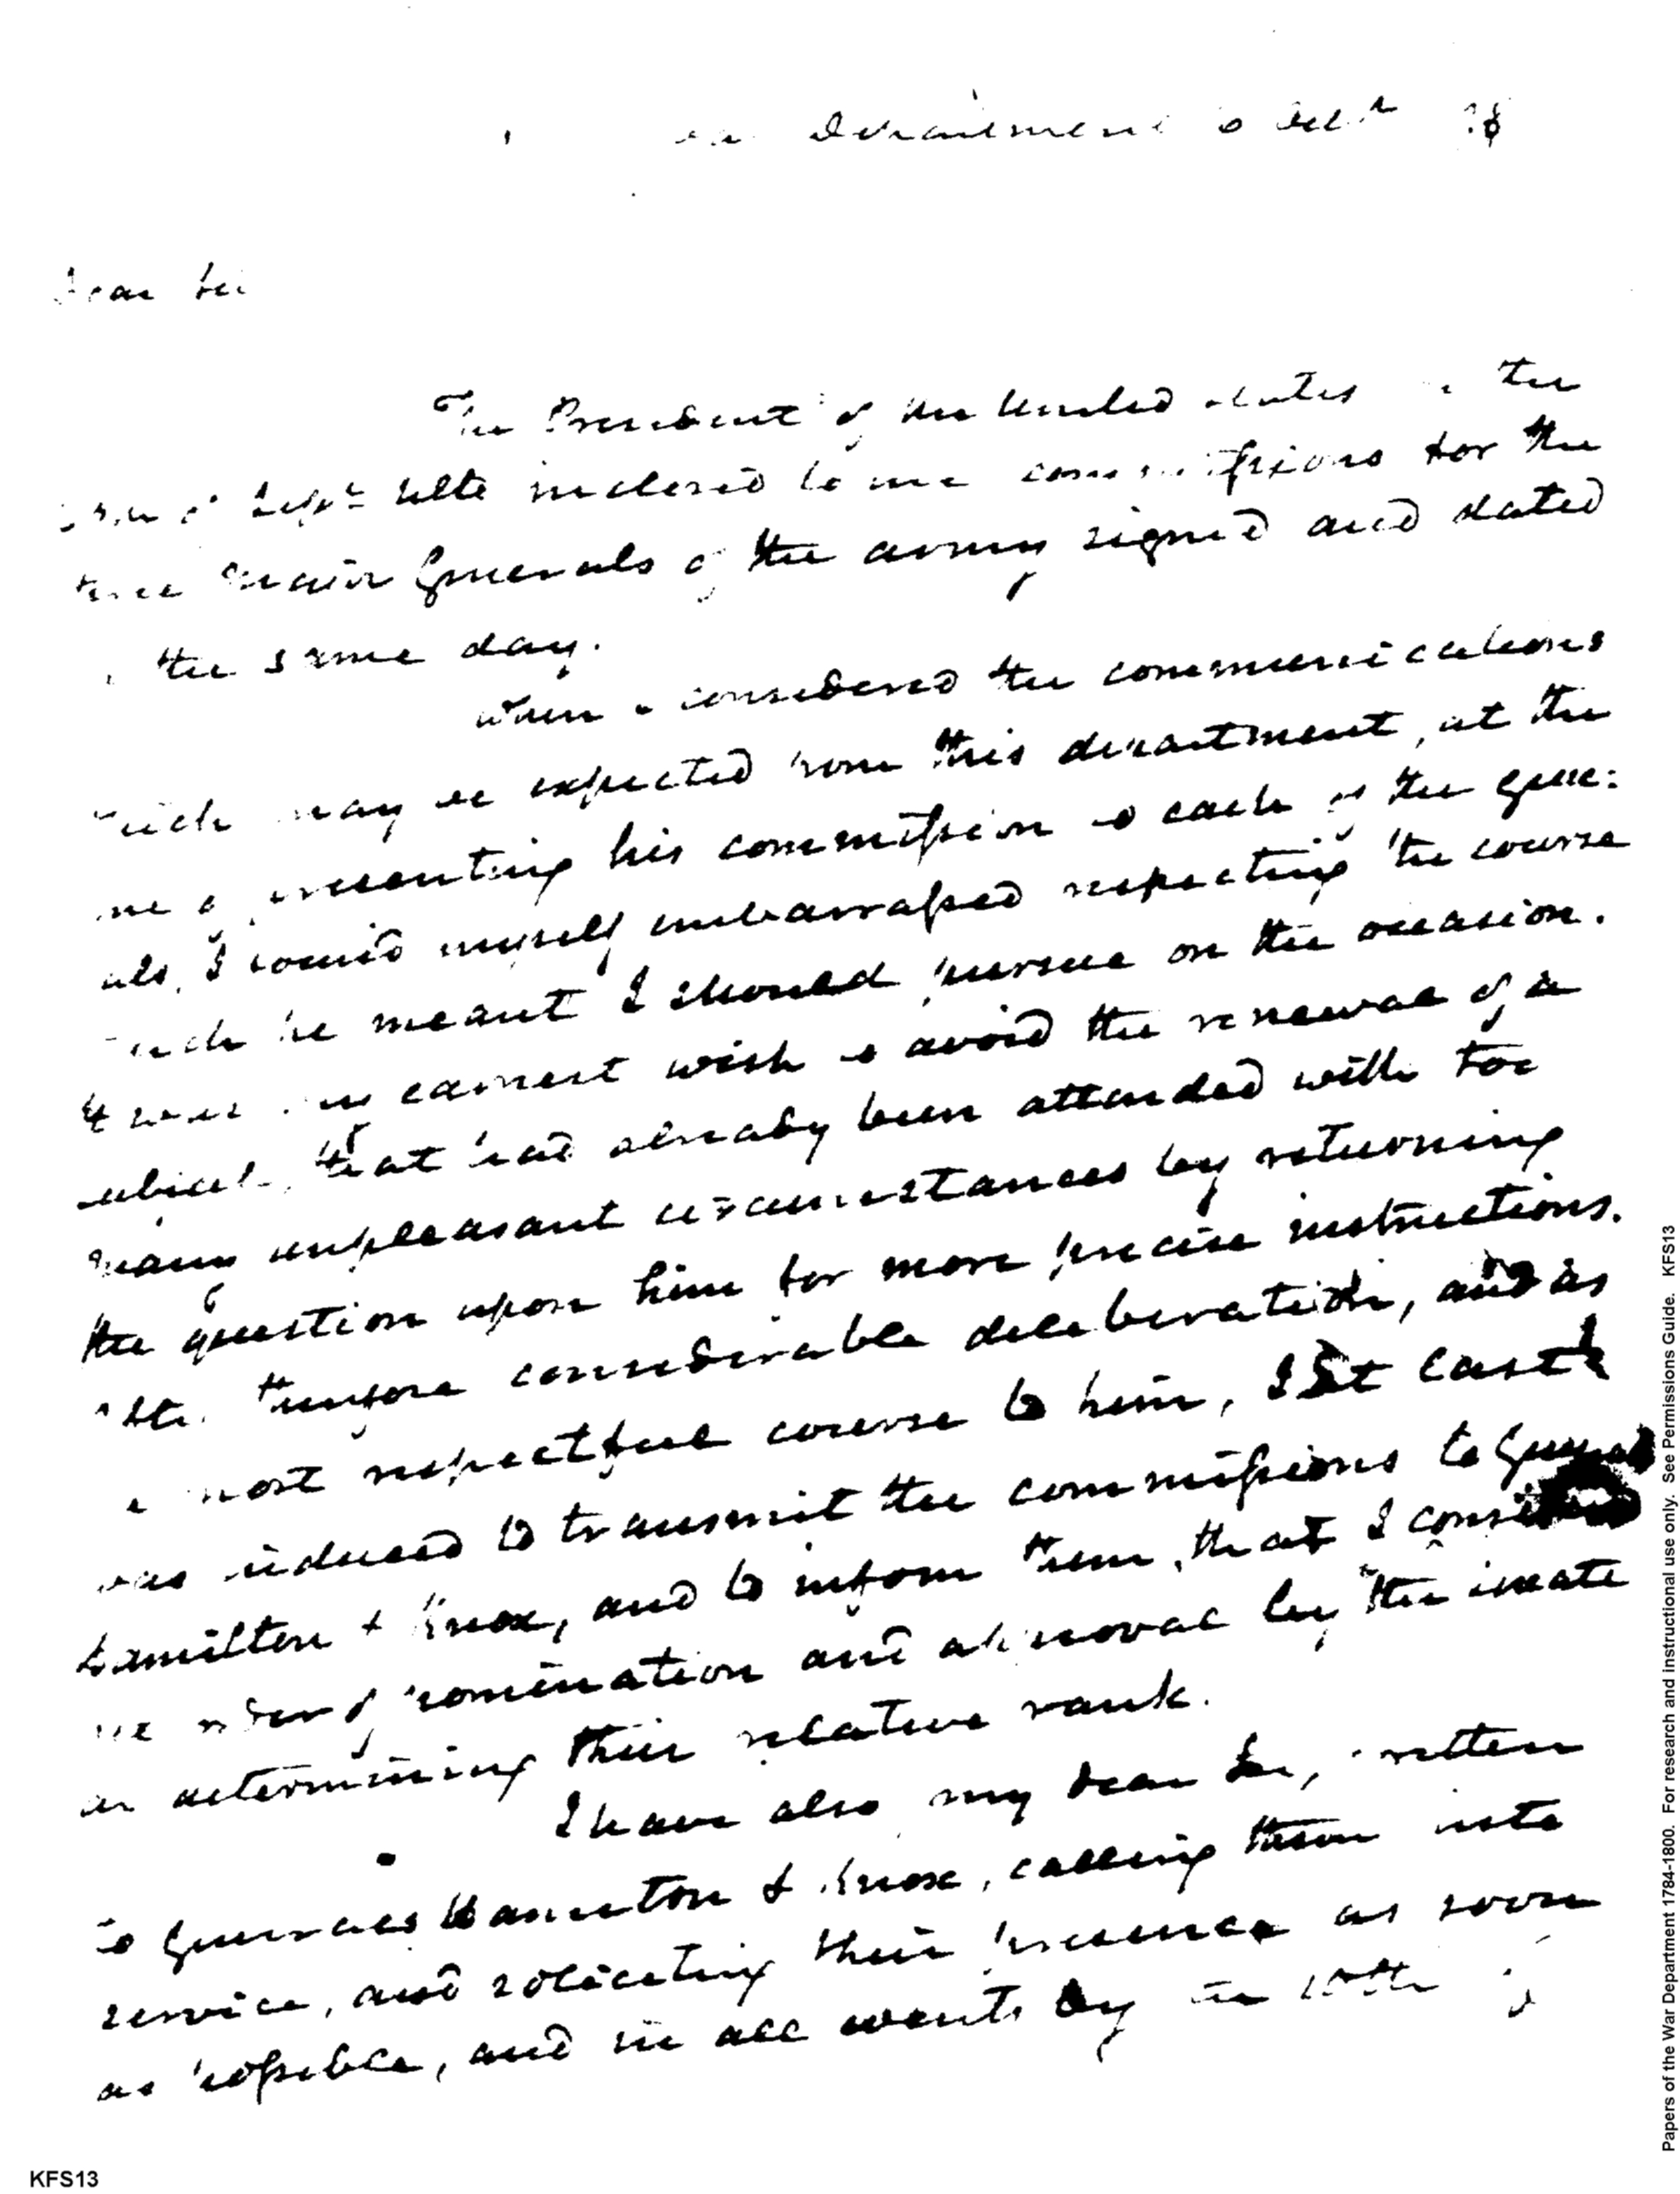 Department Oct^r 98
Dear Sir
The President of the United States the
Sept^r Ulto inclosed to me commissions for the
three Major Generals of the army signed and dated
the same day.
When I considered the communications
which may be expected from this department, at the
time of presenting his commission to each of the gene:
als, I found myself embarrassed respecting the course
which he meant I should pursue on the occasion.
It was my earnest wish to avoid the renewal of a
subject, that had already been attended with too
many unpleasant circumstances by returning
the question upon him for more precise instructions.
After therefore considerable deliberation, and as
a most respectful course to him, I at last
was induced to transmit the commissions to General
Hamilton & Knox, and to inform them, that I considered
the order of nomination and approval by the senate
as determining their relative rank.
I have also my dear Sir, written
to Generals Hamilton & Knox, calling them into
service, and soliciting their presence as soon
as possible, and in all events by the 10th of
KFS13
Papers of the War Department 1784-1800. For research and instructional use only. See Permissions Guide. KFS13